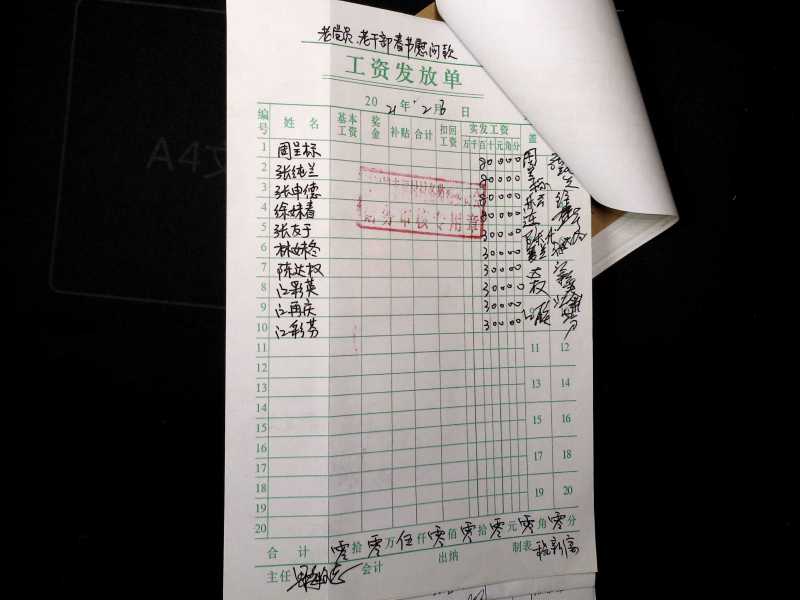 老党员、老干部春节慰问款
工资发放单
2021年2月8日
编号 姓名 基本工资 奖金 补贴 合计 扣回工资 实发工资 盖
万千百十元角分
1 周呈标 80000
2 张纯兰 80000
3 张申德 80000
4 徐妹春 80000
5 张友于 30000
6 林妹冬 30000
7 陈达权 30000
8 江彩英 30000
9 江再庆 30000
10 江彩芬 30000
财务审核专用章
11 11 12
12
13 13 14
14
15 15 16
16
17 17 18
18
19 19 20
20
合计 零拾零万伍仟零佰零拾零元零角零分
主任 会计 出纳 制表